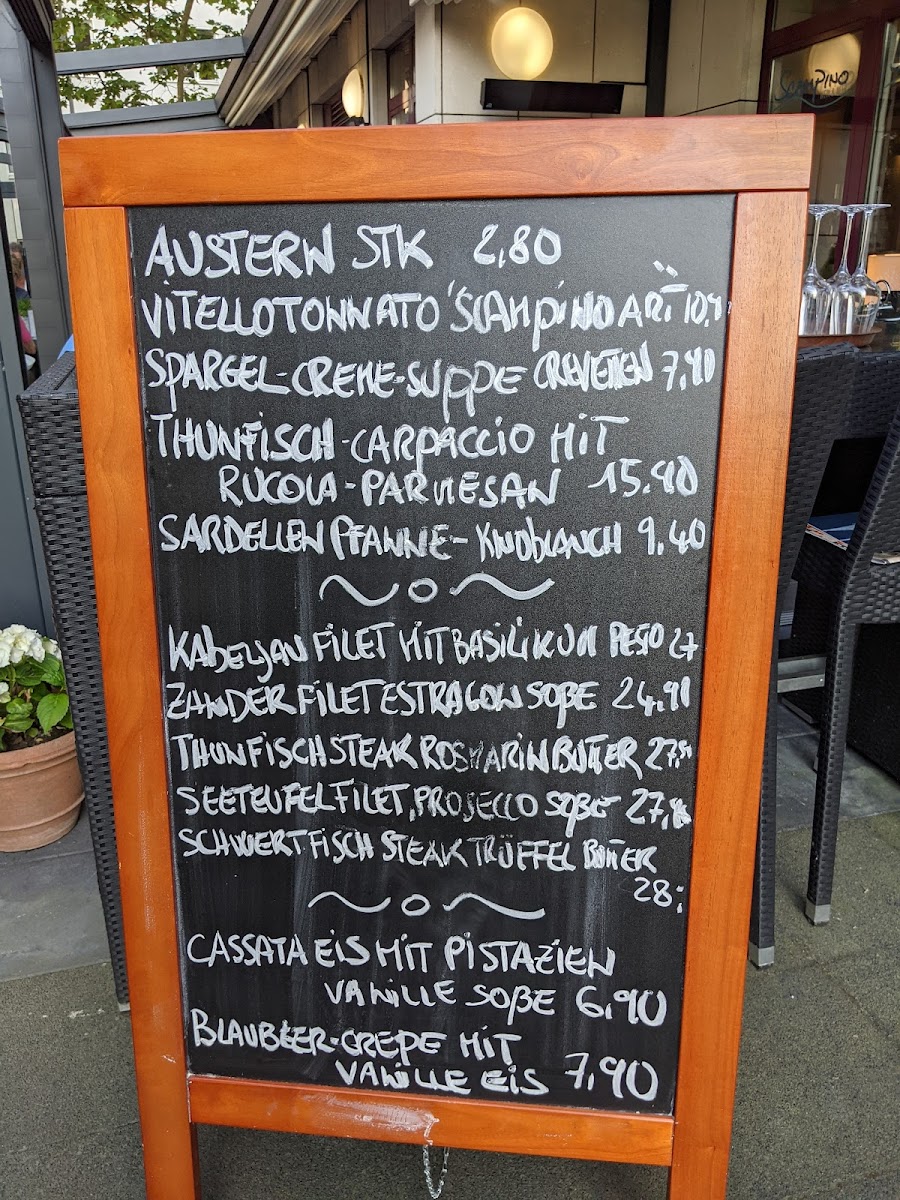 SCAMPINO
AUSTERN STK 2,80
VITELLOTONNATO 'SCAMPINO ART"
SPARGEL-CREME-SUPPE CREVETTEN 7,90
THUNFISCH-CARPACCIO MIT
RUCOLA-PARMESAN 15.90
SARDELLEN PFANNE - KNOBLAUCH 9.40
KABELJAU FILET MIT BASILIKUM PESTO 27
ZANDER FILET ESTRAGON SOßE 24,90
THUNFISCH STEAK ROSMARIN BUTTER 27,90
SEETEUFELFILET, PROSECCO SOßE 27,
SCHWERTFISCH STEAK TRÜFFEL BUTTER
28;
CASSATA EIS MIT PISTAZIEN
VANILLE SOßE 6,90
BLAUBEER-CREPE MIT
VANILLE EIS 7,90